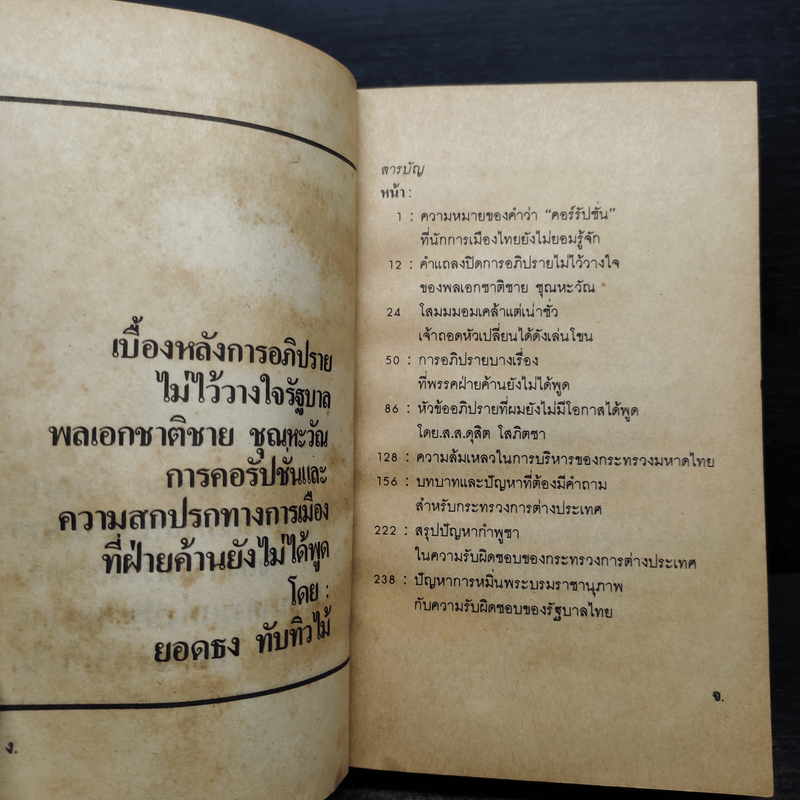 เบื้องหลังการอภิปราย
ไม่ไว้วางใจรัฐบาล
พลเอกชาติชาย ชุณหะวัณ
การคอรัปชั่นและ
ความสกปรกทางการเมือง
ที่ฝ่ายค้านยังไม่ได้พูด
โดย :
ยอดธง ทับทิวไม้
ง.
สารบัญ
หน้า :
1 : ความหมายของคำว่า “คอร์รัปชั่น”
ที่นักการเมืองไทยยังไม่ยอมรู้จัก
12 : คำแถลงปิดการอภิปรายไม่ไว้วางใจ
ของพลเอกชาติชาย ชุณหะวัณ
24 โสมมมอมเคล้าแต่เน่าชั่ว
เจ้าถอดหัวเปลี่ยนได้ดังเล่นโขน
50 : การอภิปรายบางเรื่อง
ที่พรรคฝ่ายค้านยังไม่ได้พูด
86 : หัวข้ออภิปรายที่ผมยังไม่มีโอกาสได้พูด
โดย.ส.ส.ดุสิต โสภิตชา
128 : ความล้มเหลวในการบริหารของกระทรวงมหาดไทย
156 : บทบาทและปัญหาที่ต้องมีคำถาม
สำหรับกระทรวงการต่างประเทศ
222 : สรุปปัญหากำพูชา
ในความรับผิดชอบของกระทรวงการต่างประเทศ
238 : ปัญหาการหมิ่นพระบรมราชานุภาพ
กับความรับผิดชอบของรัฐบาลไทย
จ.